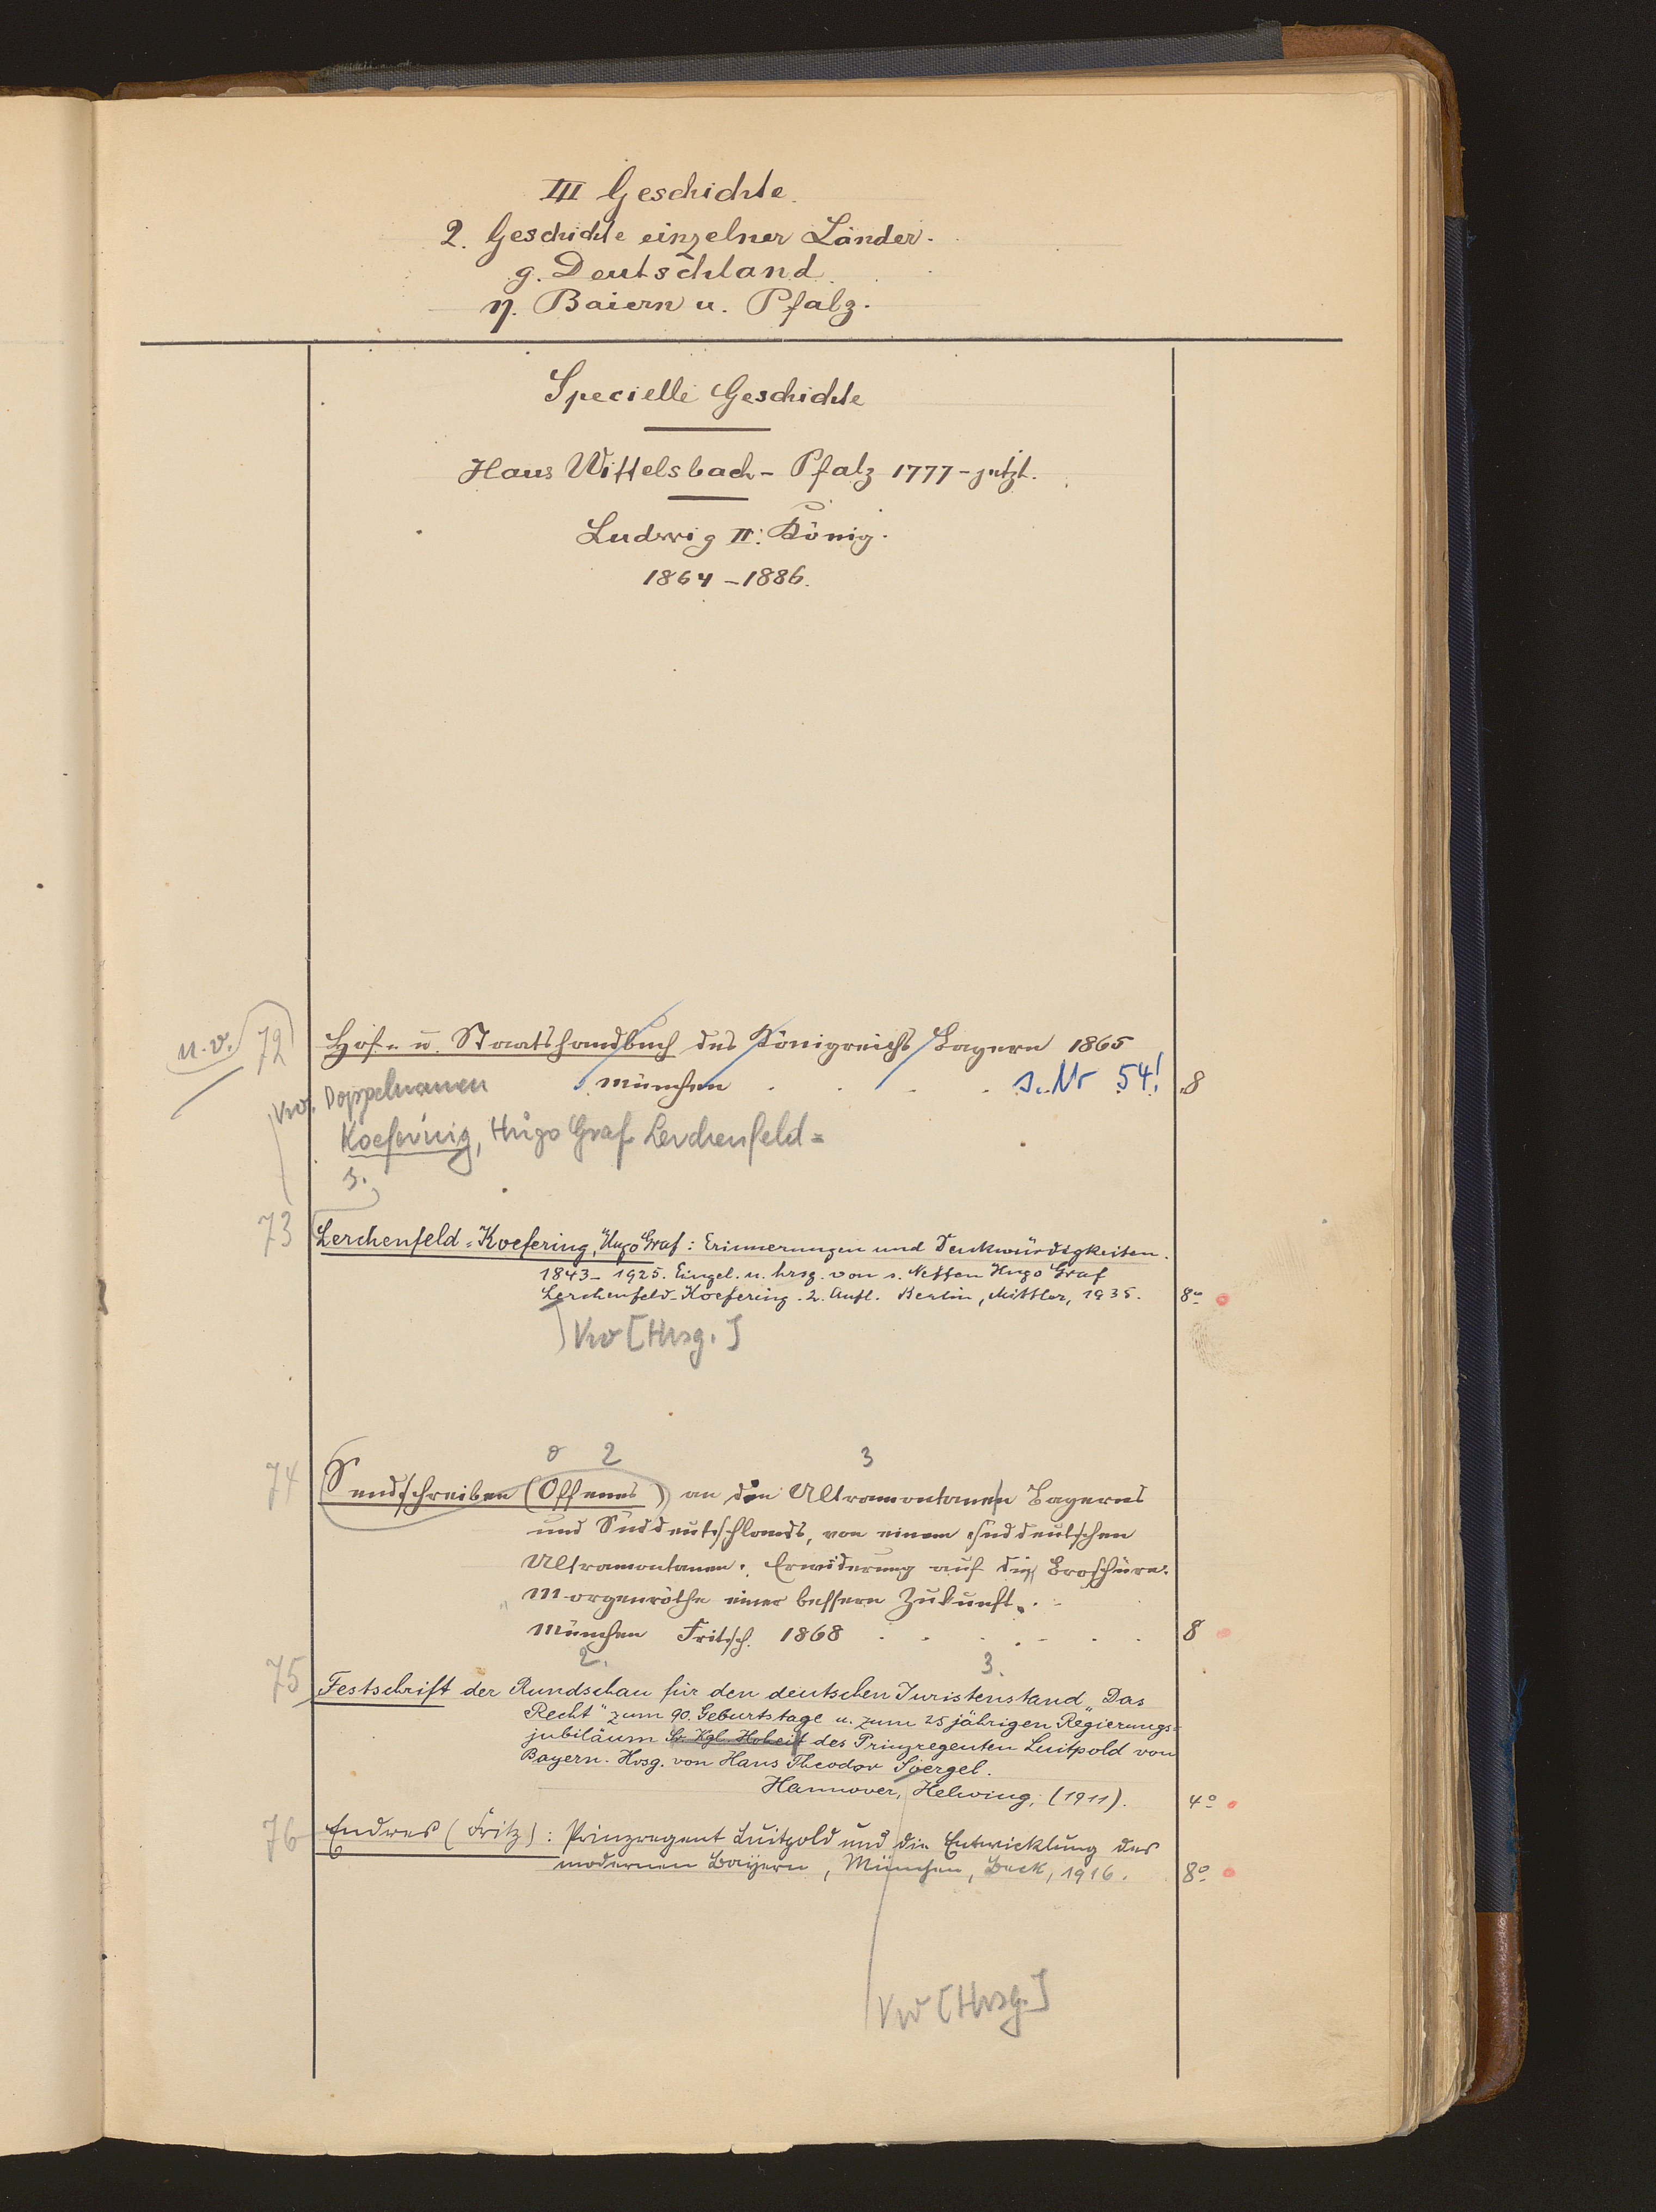 III Geschichte.
2. Geschichte einzelner Länder.
g. Deutschland
η. Baiern u. Pfalz.
Specielle Geschichte
Haus Wittelsbach - Pfalz 1777 - jetzt.
Ludwig II. König.
1864 - 1886.
u. v. 72 Hof- u. Staatshandbuch des Königreichs Bayern 1865
München . . . . s. Nr 54! 8
Vw. Doppelnamen
Koefering, Hugo Graf Lerchenfeld=
s.
73 Lerchenfeld=Koefering, Hugo Graf: Erinnerungen und Denkwürdigkeiten.
1843-1925. Eingel. u. hrsg. von s. Neffen Hugo Graf
Lerchenfeld-Koefering. 2. Aufl. Berlin, Mittler, 1935. 8°
Vw [Hrsg.]
2 3
74 Sendschreiben (Offenes) an die Ultramontanen Bayerns
und Süddeutschlands, von einem süddeutschen
Ultramontanen. Erwiderung auf die Broschüre:
„Morgenröthe einer bessern Zukunft“.
München Fritsch. 1868 . . . . . . 8
2. 3.
75 Festschrift der Rundschau für den deutschen Juristenstand „Das
Recht" zum 90. Geburtstage u. zum 25 jährigen Regierungs=
jubiläum Sr. Kgl. Hoheit des Prinzregenten Luitpold von
Bayern. Hrsg. von Hans Theodor Soergel.
Hannover, Helwing, (1911). 4°
76 Endres (Fritz): Prinzregent Luitpold und die Entwicklung des
modernen Bayern, München, Beck, 1916. 8°
Vw [Hrsg.]